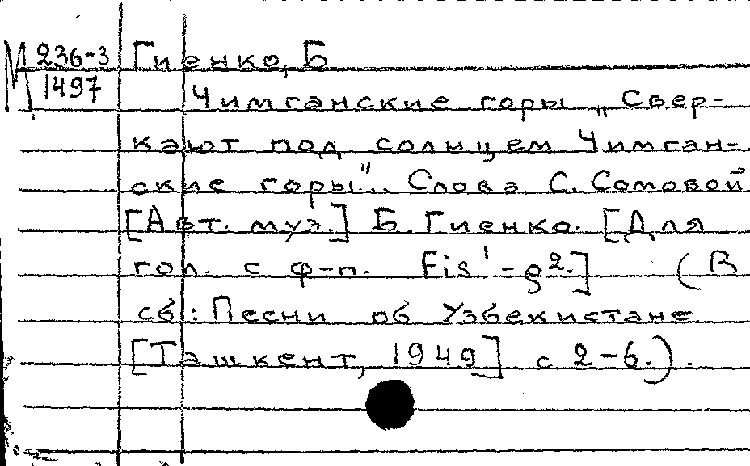 М 236-3 Гиенко, Б
1497
Чимганские горы „Свер-
кают под солнцем Чимган-
ские горы"... Слова С. Сомовой
[Авт. муз.] Б. Гиенко. [Для
гол. с ф-п. Fis'-g2.] (В
сб: Песни об Узбекистане
[Ташкент, 1949] с 2-6.).